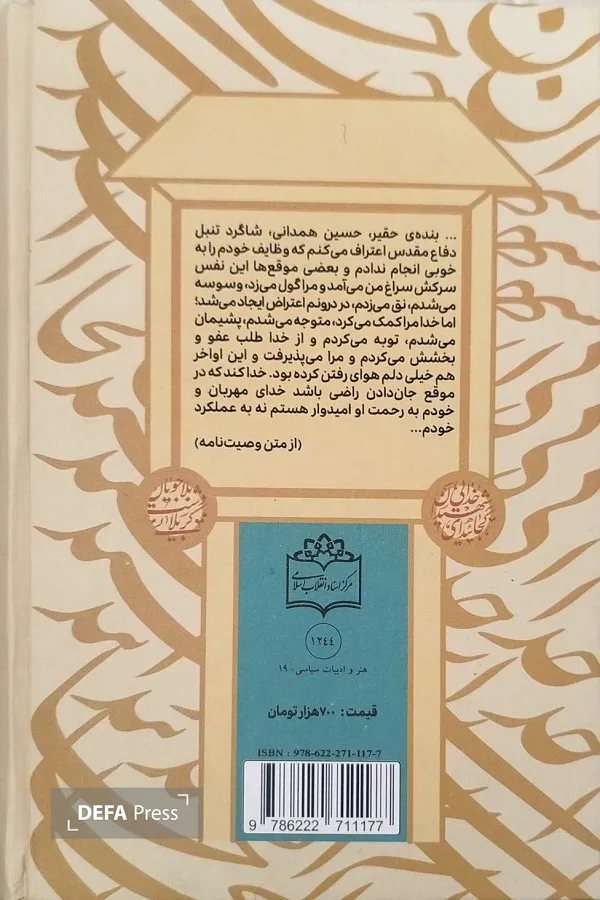 ... بنده‌ی حقیر، حسین همدانی، شاگرد تنبل
دفاع مقدس اعتراف می‌کنم که وظایف خودم را به
خوبی انجام ندادم و بعضی موقع‌ها این نفس
سرکش سراغ من می‌آمد و مرا گول می‌زد، و سوسه
می‌شدم، نق می‌زدم، در درونم اعتراض ایجاد می‌شد؛
اما خدا مرا کمک می‌کرد، متوجه می‌شدم، پشیمان
می‌شدم، توبه می‌کردم و از خدا طلب عفو و
بخشش می‌کردم و مرا می‌پذیرفت و این اواخر
هم خیلی دلم هوای رفتن کرده بود. خدا کند که در
موقع جان‌دادن راضی باشد خدای مهربان و
خودم به رحمت او امیدوار هستم نه به عملکرد
خودم...
(از متن وصیت‌نامه)
کجائید ای شهیدان خدایی
بلاجویان دشت کربلایی
مرکز اسناد انقلاب اسلامی
۱۲۴۴
هنر و ادبیات سیاسی - ۱۹
قیمت: ۷۰۰هزار تومان
ISBN : 978-622-271-117-7
9 786222 711177
DEFA Press